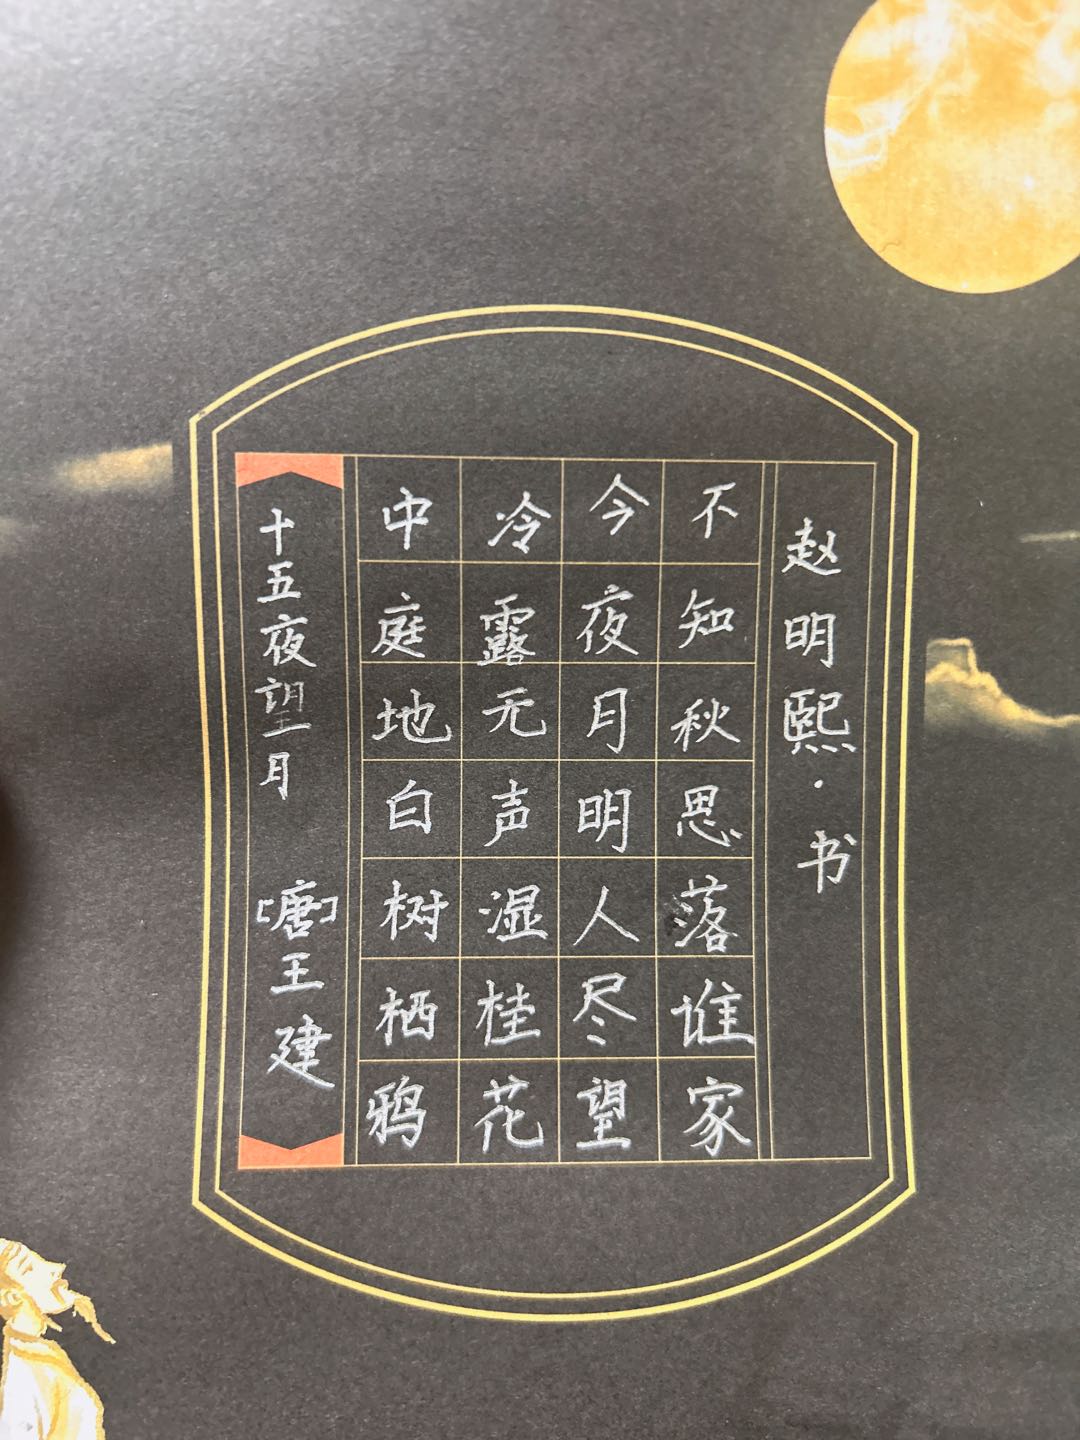 十五夜望月 [唐]王建
中庭地白树栖鸦
冷露无声湿桂花
今夜月明人尽望
不知秋思落谁家
赵明熙·书